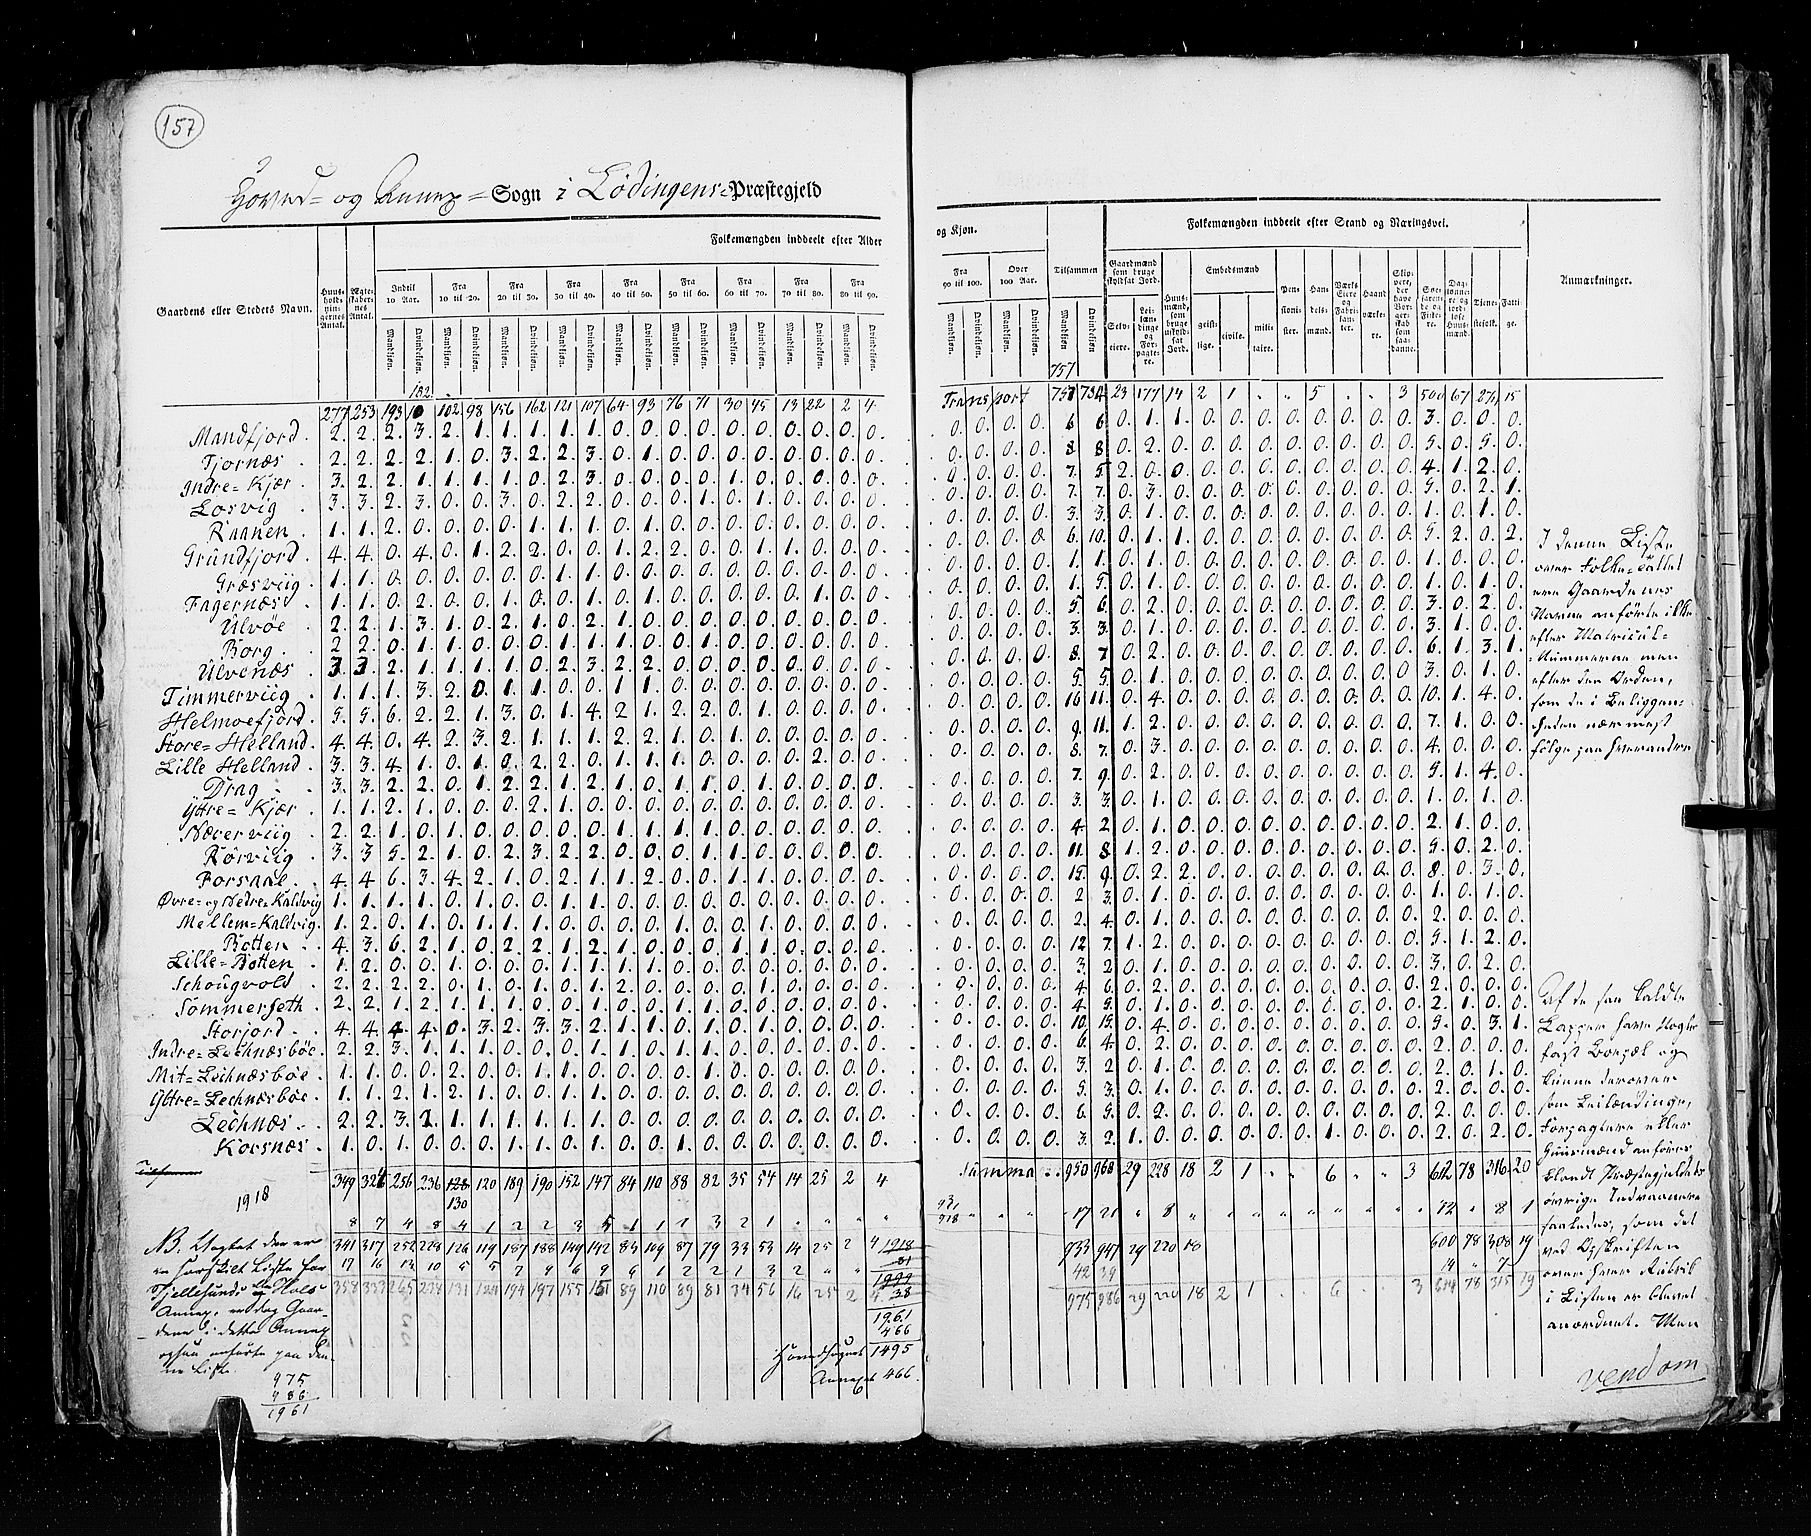 157
Hoved- og Annex-Sogn i Lödingens-Præstegjeld
Folkemængden inddeelt efter Alder
Gaardens eller Stedets Navn.
Indtil 10 Aar.
Fra 10 til 20.
Fra 20 til 30.
Fra 30 til 40.
Fra 40 til 50.
Fra 50 til 60.
Fra 60 til 70.
Fra 70 til 80.
Fra 80 til 90.
Mandkjøn. Qvindekjøn.
182
277 253 193 102 98 156 162 121 107 64 93 76 71 30 45 13 22 2 4
Mandfjord. 2. 2. 2. 3. 2. 1. 1. 1. 1. 1. 0. 0. 0. 0. 0. 0. 0. 0. 0. 0.
Tjornæs 2. 2. 2. 2. 1. 0. 3. 2. 2. 3. 0. 1. 0. 0. 0. 0. 0. 0. 0. 0.
Indre-Kjær 3. 2. 2. 1. 1. 1. 1. 0. 2. 3. 0. 0. 0. 0. 1. 0. 0. 0. 0. 0.
Losvig 3. 3. 2. 3. 0. 0. 3. 0. 2. 2. 0. 0. 0. 1. 0. 1. 0. 0. 0. 0.
Raanen 1. 1. 2. 0. 0. 0. 0. 1. 1. 1. 0. 1. 0. 0. 0. 0. 0. 0. 0. 0.
Grundfjord 4. 4. 0. 4. 0. 1. 2. 2. 0. 0. 1. 2. 2. 0. 0. 1. 1. 0. 0. 0.
Græsviig 1. 1. 0. 0. 0. 0. 0. 0. 1. 1. 0. 0. 0. 0. 0. 0. 0. 0. 0. 0.
Fagernæs 1. 1. 0. 2. 0. 0. 1. 0. 0. 1. 0. 1. 0. 0. 0. 0. 0. 1. 0. 0.
Ulvöe 2. 2. 1. 3. 1. 0. 2. 1. 0. 2. 1. 0. 0. 0. 0. 0. 0. 0. 0. 0.
Borg 2. 2. 0. 1. 1. 0. 1. 0. 0. 1. 0. 0. 0. 1. 1. 0. 0. 0. 0. 0.
Ulvenæs 3. 3. 2. 1. 1. 1. 1. 0. 2. 3. 2. 2. 0. 0. 0. 0. 0. 0. 0. 0.
Timmerviig 1. 1. 1. 3. 2. 0. 1. 1. 0. 0. 1. 1. 0. 0. 0. 0. 0. 0. 0. 0.
Helmoefjord 5. 5. 6. 2. 2. 1. 3. 0. 1. 4. 2. 1. 2. 2. 0. 1. 0. 0. 0. 0.
Store-Helland. 4. 4. 0. 4. 2. 3. 2. 1. 1. 1. 2. 2. 1. 0. 1. 0. 0. 0. 0. 0.
Lille Helland. 3. 3. 4. 1. 0. 1. 0. 2. 2. 0. 1. 1. 1. 0. 0. 0. 0. 2. 0. 0.
Drag 3. 3. 2. 2. 0. 1. 2. 2. 1. 2. 1. 0. 1. 1. 0. 1. 0. 0. 0. 0.
Yttre-Kjær 1. 1. 2. 1. 0. 0. 0. 2. 1. 0. 0. 0. 0. 0. 0. 0. 0. 0. 0. 0.
Næverviig 2. 2. 1. 0. 1. 0. 0. 0. 0. 0. 1. 1. 1. 1. 0. 0. 0. 0. 0. 0.
Rörviig 3. 3. 5. 2. 1. 0. 2. 3. 2. 2. 0. 0. 0. 1. 1. 0. 0. 0. 0. 0.
Forsaae 4. 4. 6. 3. 4. 2. 1. 0. 2. 1. 1. 2. 0. 0. 1. 1. 0. 0. 0. 0.
Øvre-og Nedre-Kaldvig 1. 1. 1. 1. 0. 1. 0. 0. 1. 1. 0. 0. 0. 0. 0. 0. 0. 0. 0. 0.
Mellem-Kaldvig. 1. 2. 0. 1. 0. 1. 1. 1. 0. 1. 0. 0. 0. 0. 1. 0. 0. 0. 0.
Botten 4. 3. 6. 2. 1. 0. 2. 2. 1. 2. 1. 0. 0. 0. 1. 1. 0. 0. 0. 0.
Lille-Botten 1. 2. 0. 0. 1. 0. 0. 0. 1. 1. 1. 1. 0. 0. 0. 0. 0. 0. 0. 0.
Schougvold 2. 2. 2. 2. 0. 1. 0. 1. 0. 1. 2. 0. 0. 0. 0. 1. 0. 0. 0. 0.
Sommerseth 2. 2. 1. 2. 1. 1. 1. 0. 0. 1. 0. 0. 1. 1. 0. 0. 0. 0. 0. 0.
Storjord 4. 4. 4. 4. 0. 3. 2. 3. 3. 2. 1. 1. 0. 1. 0. 1. 0. 0. 0. 0.
Indre-Lechnæsböe. 2. 2. 3. 1. 1. 1. 0. 0. 0. 1. 1. 0. 1. 1. 0. 0. 0. 0. 0. 0.
Mit-Lechnæsböe 1. 1. 0. 0. 2. 0. 0. 1. 1. 0. 0. 0. 0. 1. 0. 0. 0. 0. 0. 0.
Yttre-Lechnæsböe 1. 1. 2. 1. 2. 1. 0. 0. 0. 1. 1. 0. 0. 0. 0. 0. 0. 0. 0. 0.
Lechnæs 2. 2. 3. 2. 1. 1. 1. 1. 1. 1. 0. 0. 0. 0. 0. 0. 0. 0. 0. 0.
Korsnæs 1. 0. 1. 0. 0. 0. 1. 1. 0. 1. 0. 0. 1. 0. 0. 0. 0. 0. 0. 0.
349 324 256 236 128 120 189 190 152 147 84 110 88 82 35 54 14 25 2 4
1918
130
8 7 4 8 4 1 2 2 3 5 1 1 1 3 2 1
341 317 252 228 126 119 187 188 149 142 83 109 87 79 33 53 14 25 2 4
1918
1961
466
Hovedsognet 1495
Annexet 466
975
986
1961
og Kjøn.
Fra 90 til 100.
Over 100 Aar.
Tilsammen
Folkemængden inddeelt efter Stand og Næringsvei.
Embedsmænd
Anmærkninger.
757
Transport 757 734 23 177 14 2 1 " " 5 " " 3 500 67 271 15
0. 0. 0. 0. 6 6 0. 1. 1. 0. 0. 0. 0. 0. 0. 0. 0. 3. 0. 0. 0.
0. 0. 0. 0. 8 8 0. 2. 0. 0. 0. 0. 0. 0. 0. 0. 0. 5. 0. 5. 0.
0. 0. 0. 0. 7. 5 2. 0. 0. 0. 0. 0. 0. 0. 0. 0. 0. 4. 1. 2. 0.
0. 0. 0. 0. 7. 7. 0. 3. 0. 0. 0. 0. 0. 0. 0. 0. 0. 5. 0. 2. 1.
0. 0. 0. 0. 3. 3. 0. 1. 0. 0. 0. 0. 0. 0. 0. 0. 0. 1. 0. 1. 0.
0. 0. 0. 0. 6. 10. 0. 1. 1. 0. 0. 0. 0. 0. 0. 0. 0. 5. 2. 0. 2.
0. 0. 0. 0. 1. 1. 0. 1. 0. 0. 0. 0. 0. 0. 0. 0. 0. 1. 0. 0. 0.
0. 0. 0. 0. 1. 5. 0. 1. 0. 0. 0. 0. 0. 0. 0. 0. 0. 1. 0. 1. 0.
0. 0. 0. 0. 5. 6. 0. 2. 0. 0. 0. 0. 0. 0. 0. 0. 0. 3. 0. 2. 0.
0. 0. 0. 0. 3. 3. 0. 1. 0. 0. 0. 0. 0. 0. 0. 0. 0. 3. 1. 0. 0.
0. 0. 0. 0. 8. 7. 0. 2. 0. 0. 0. 0. 0. 0. 0. 0. 0. 6. 1. 3. 1.
0. 0. 0. 0. 5. 5. 0. 1. 0. 0. 0. 0. 0. 0. 0. 0. 0. 3. 0. 1. 0.
0. 0. 0. 0. 16 11. 0. 4. 0. 0. 0. 0. 0. 0. 0. 0. 0. 10. 1. 4. 0.
0. 0. 0. 0. 9. 11. 1. 2. 0. 0. 0. 0. 0. 0. 0. 0. 0. 7. 1. 0. 0.
0. 0. 0. 0. 8. 7. 0. 3. 0. 0. 0. 0. 0. 0. 0. 0. 0. 4. 0. 0. 0.
0. 0. 0. 0. 7. 9. 0. 2. 0. 0. 0. 0. 0. 0. 0. 0. 0. 5. 1. 4. 0.
0. 0. 0. 0. 3. 3. 0. 1. 0. 0. 0. 0. 0. 0. 0. 0. 0. 1. 0. 1. 0.
0. 0. 0. 0. 4. 2. 0. 1. 0. 0. 0. 0. 0. 0. 0. 0. 0. 2. 1. 0. 0.
0. 0. 0. 0. 11. 8. 1. 2. 0. 0. 0. 0. 0. 0. 0. 0. 0. 5. 0. 2. 0.
0. 0. 0. 0. 15. 9. 0. 2. 2. 0. 0. 0. 0. 0. 0. 0. 0. 8. 0. 3. 0.
0. 0. 0. 0. 2 3. 0. 1. 0. 0. 0. 0. 0. 0. 0. 0. 0. 1. 0. 1. 0.
0. 0. 0. 0. 2. 4. 0. 1. 0. 0. 0. 0. 0. 0. 0. 0. 0. 2. 0. 0. 0.
0. 0. 0. 0. 12 7. 1. 2. 0. 0. 0. 0. 0. 0. 0. 0. 0. 5. 1. 2. 0.
0. 0. 0. 0. 3. 2. 0. 1. 0. 0. 0. 0. 0. 0. 0. 0. 0. 3. 0. 2. 0.
0. 0. 0. 0. 4. 6. 0. 2. 0. 0. 0. 0. 0. 0. 0. 0. 0. 2. 0. 0. 0.
0. 0. 0. 0. 4. 5. 0. 1. 0. 0. 0. 0. 0. 0. 0. 0. 0. 2. 1. 0. 0.
0. 0. 0. 0. 10. 15. 0. 4. 0. 0. 0. 0. 0. 0. 0. 0. 0. 5. 0. 3. 1.
0. 0. 0. 0. 6. 4. 0. 2. 0. 0. 0. 0. 0. 0. 0. 0. 0. 2. 0. 0. 0.
0. 0. 0. 0. 3. 2. 0. 1. 0. 0. 0. 0. 0. 0. 0. 0. 0. 2. 0. 1. 0.
0. 0. 0. 0. 5. 3. 0. 1. 0. 0. 0. 0. 0. 0. 0. 0. 0. 2. 0. 0. 0.
0. 0. 0. 0. 6. 5. 0. 2. 0. 0. 0. 0. 0. 0. 0. 0. 0. 2. 0. 0. 0.
0. 0. 0. 0. 3. 2. 1. 0. 0. 0. 0. 0. 0. 1. 0. 0. 0. 2. 0. 2. 0.
Summa 950 968 29 228 18 2 1 " " 6 " " 3 612 78 316 20
17 21 " 8 " 12 " 8 1
933 947 29 220 18 600 78 308 19
42 39 14 " 7
975 986 29 220 18 2 1 6 3 614 78 315 19
I denne Liste
over Folke-Tallet
ere Gaardenes
Navne anförte ikke
efter Matricul-
Nummerne men
efter den Orden,
som de i Beliggen-
heden nærmest
fölge paa hverandre
Af de saa kaldte
Lapper have Nogle
fast Boepæl og
kunne derover
som Leilændinge,
Forpagtere eller
Huusmænd anföres
blandt Præstegjeldets
övrige Indvaanere
saaledes, som det
ved Opskriften
over hver Rubrik
i Listen er blevet
anordnet. Men
vend om